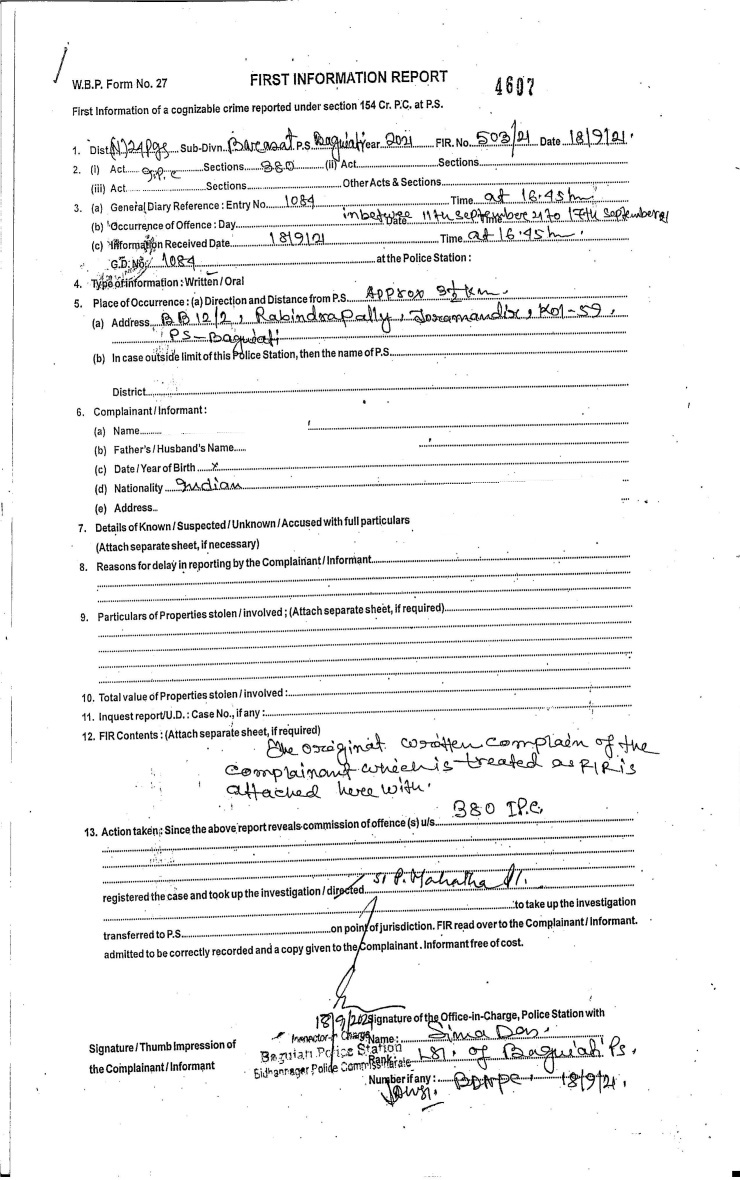 W.B.P. Form No. 27
FIRST INFORMATION REPORT
4607
First Information of a cognizable crime reported under section 154 Cr. P.C. at P.S.
1. Dist (N) 24 Pgs Sub-Divn. Barasat P.S. Baguiati Year 2021 FIR. No. 503/21 Date 18/9/21.
2. (i) Act I.P.C Sections 380 (ii) Act Sections
(iii) Act Sections Other Acts & Sections
3. (a) General Diary Reference : Entry No. 1084 Time at 16.45 hr
(b) Occurrence of Offence : Day in betwee 11th september 21 to 17th september 21 Date Time
(c) Information Received Date 18/9/21 Time at 16.45 hr.
G.D. No. 1084 at the Police Station :
4. Type of information : Written / Oral
5. Place of Occurrence : (a) Direction and Distance from P.S. Approx 3½ km.
(a) Address BB 12/2, Rabindrapally, Joramandir, Kol-59,
PS-Baguiati
(b) In case outside limit of this Police Station, then the name of P.S.
District
6. Complainant / Informant :
(a) Name
(b) Father's / Husband's Name
(c) Date / Year of Birth x
(d) Nationality Indian
(e) Address
7. Details of Known / Suspected / Unknown / Accused with full particulars
(Attach separate sheet, if necessary)
8. Reasons for delay in reporting by the Complainant / Informant
9. Particulars of Properties stolen / involved ; (Attach separate sheet, if required)
10. Total value of Properties stolen / involved :
11. Inquest report/U.D. : Case No., if any :
12. FIR Contents : (Attach separate sheet, if required)
The original written complain of the
complainant which is treated as FIR is
attached here with.
13. Action taken : Since the above report reveals commission of offence (s) u/s 380 IPC.
registered the case and took up the investigation / directed SI P. Mahatha
to take up the investigation
transferred to P.S. on point of jurisdiction. FIR read over to the Complainant / Informant.
admitted to be correctly recorded and a copy given to the Complainant . Informant free of cost.
18/9/2021 Signature of the Office-in-Charge, Police Station with
Inspector-in Charge Name : Sima Das.
Signature / Thumb Impression of
Baguiati Police Station Rank : LSI. of Baguiati Ps.
the Complainant / Informant
Bidhannagar Police Commissionerate
Number if any : BDNPC. 18/9/21.